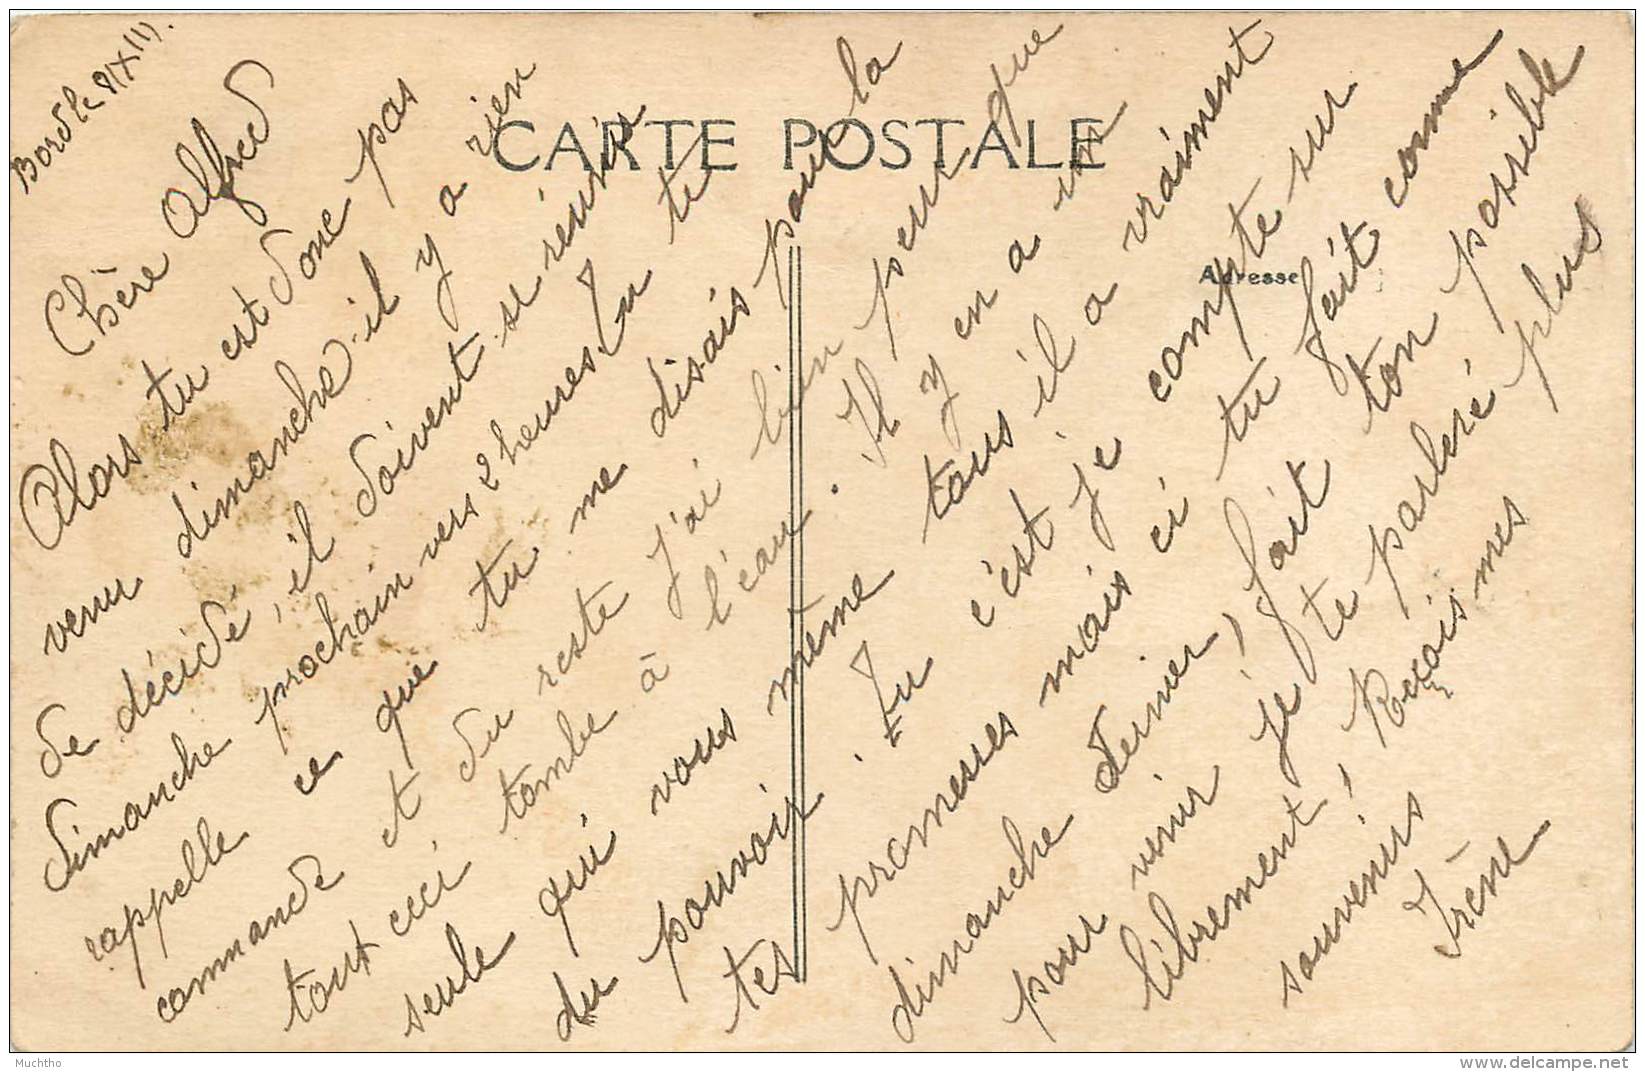 CARTE POSTALE
Adresse
Bord le
Chère Alfred
Alors tu est donc pas
venu dimanche il y a rien
de décidé, il doivent se réunir
dimanche prochain vers 2 heures Tu te
rappelle ce que tu me disais pour la
commande et du reste J'ai bien peur que
tout ceci tombe à l'eau. Il y en a un
seule qui vous même tous il a vraiment
du pouvoir. Tu c'est je compte sur
tes promesses mais ci tu fait comme
dimanche dernier, fait ton possible
pour venir je te parleré plus
librement, Reçois mes
souvenirs
Irène
Muchtho
delcampe.net